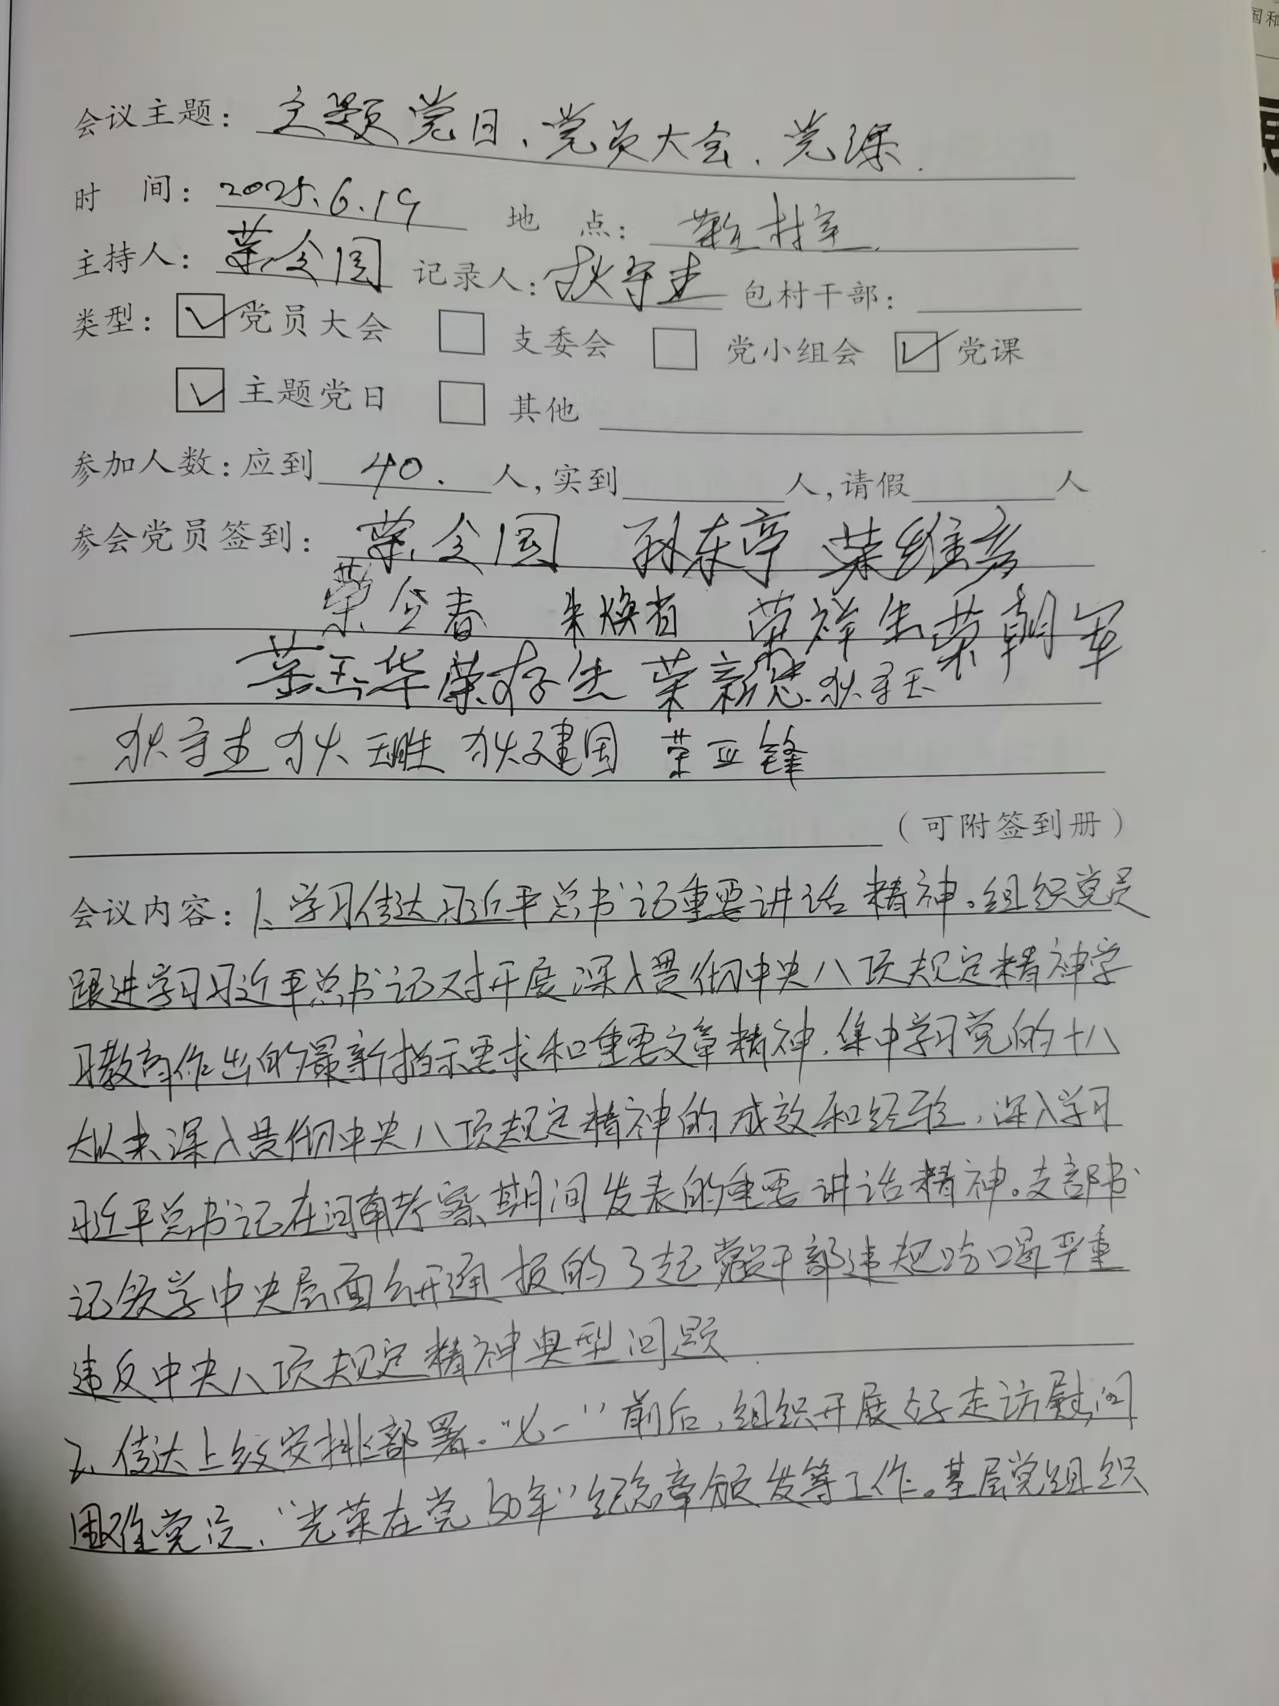 会议主题：主题党日、党员大会、党课
时 间：2025.6.19 地 点：村室
主持人：荣会国 记录人：狄守志 包村干部：
类型：☑党员大会 □支委会 □党小组会 ☑党课
☑主题党日 □其他
参加人数：应到40.人,实到 人,请假 人
参会党员签到：荣会国 孙东亭 荣维彦
荣会春 朱焕省 荣祥生 荣朝军
荣玉华 荣存生 荣新忠 狄守玉
狄守志 狄玉胜 狄建国 荣亚锋
（可附签到册）
会议内容：1、学习传达习近平总书记重要讲话精神。组织党员
跟进学习习近平总书记对开展深入贯彻中央八项规定精神学
习教育作出的最新指示要求和重要文章精神,集中学习党的十八
大以来深入贯彻中央八项规定精神的成效和经验,深入学习
习近平总书记在河南考察期间发表的重要讲话精神。支部书
记领学中央层面公开通报的3起党员干部违规吃喝严重
违反中央八项规定精神典型问题
2、传达上级安排部署。“七一”前后,组织开展好走访慰问
困难党员、“光荣在党50年”纪念章颁发等工作。基层党组织
国和
展